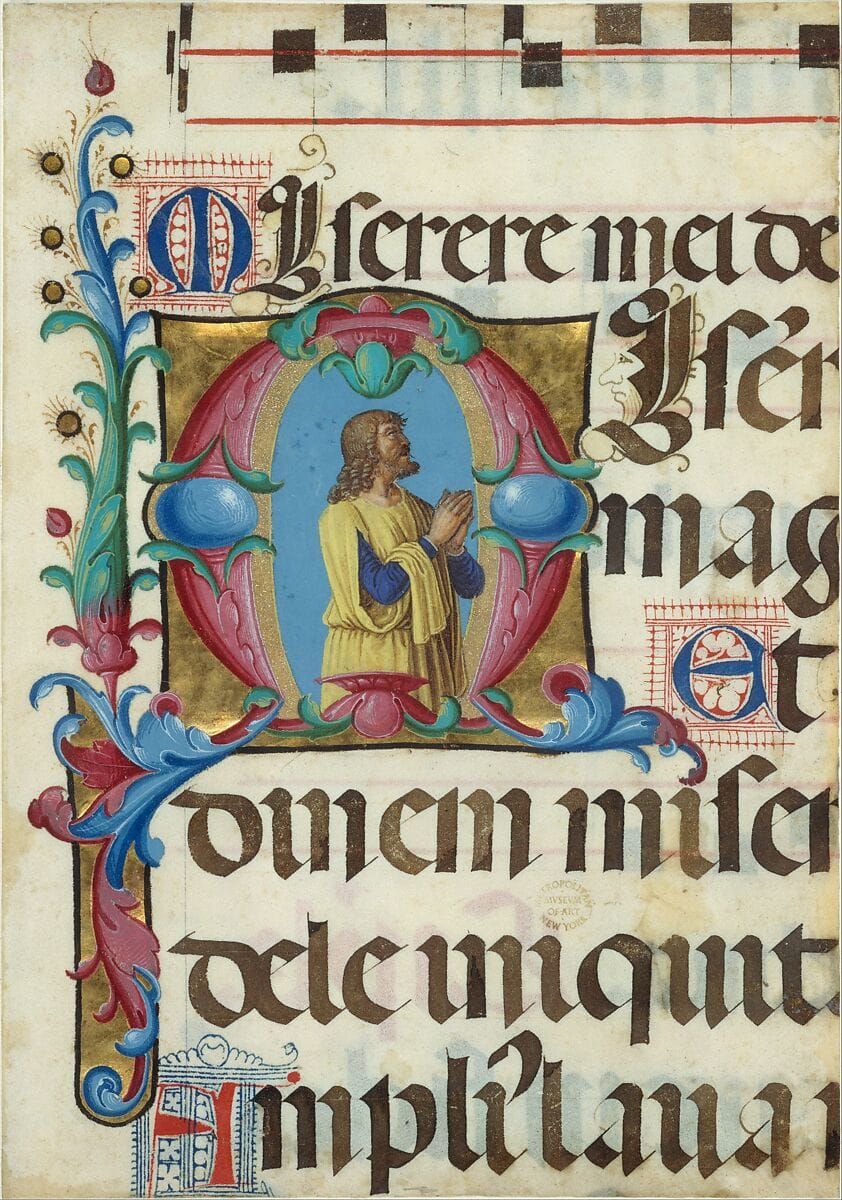 MIserere mei de
MIser
mag
Et
dinem miser
METROPOLITAN
MUSEUM
OF ART
NEW YORK
dele iniquit
Ampli' laua